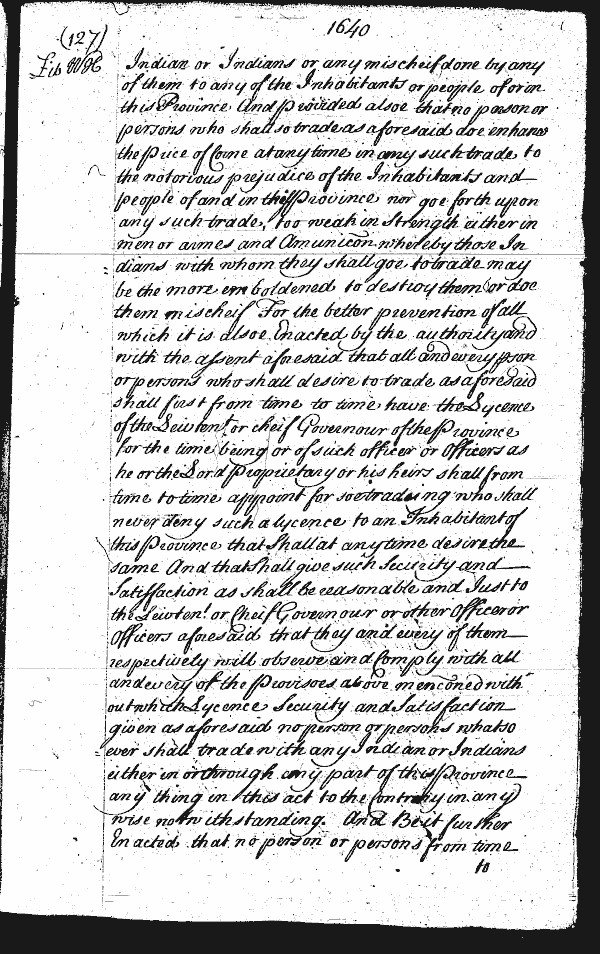 1640
(127)
Lib W H
Indian or Indians or any mischeif done by any
of them to any of the Inhabitants or people of or in
this Province And provided alsoe that no person or
persons who shall so trade as aforesaid doe enhance
the price of Corne at any time in any such trade to
the notorious prejudice of the Inhabitants and
people of and in this Province nor goe forth upon
any such trade, too weak in strength either in
men or armes and Amunicon whereby those In
dians with whom they shall goe to trade may
be the more emboldened to destroy them or doe
them mischeif For the better prevention of all
which it is alsoe Enacted by the authority and
with the assent aforesaid that all and every pson
or persons who shall desire to trade as aforesaid
shall first from time to time have the Lycence
of the Leivten.t or cheif Governour of the Province
for the time being or of such officer or Officers as
he or the Lord Proprietary or his heirs shall from
time to time appoint for soe tradeing who shall
never deny such a lycence to an Inhabitant of
this Province that Shall at any time desire the
same And that shall give such Security and
Satisfaction as shall be reasonable and Just to
the Leivten.t or Cheif Governour or other Officer or
Officers aforesaid that they and every of them
respectively will observe and Comply with all
and every of the Provisoes above menconed with
out which Lycence Security and Satisfaction
given as aforesaid no person or persons whatso
ever shall trade with any Indian or Indians
either in or through any part of this Province
any thing in this act to the Contrary in any
wise notwithstanding. And Be it further
Enacted that no person or persons from time
to